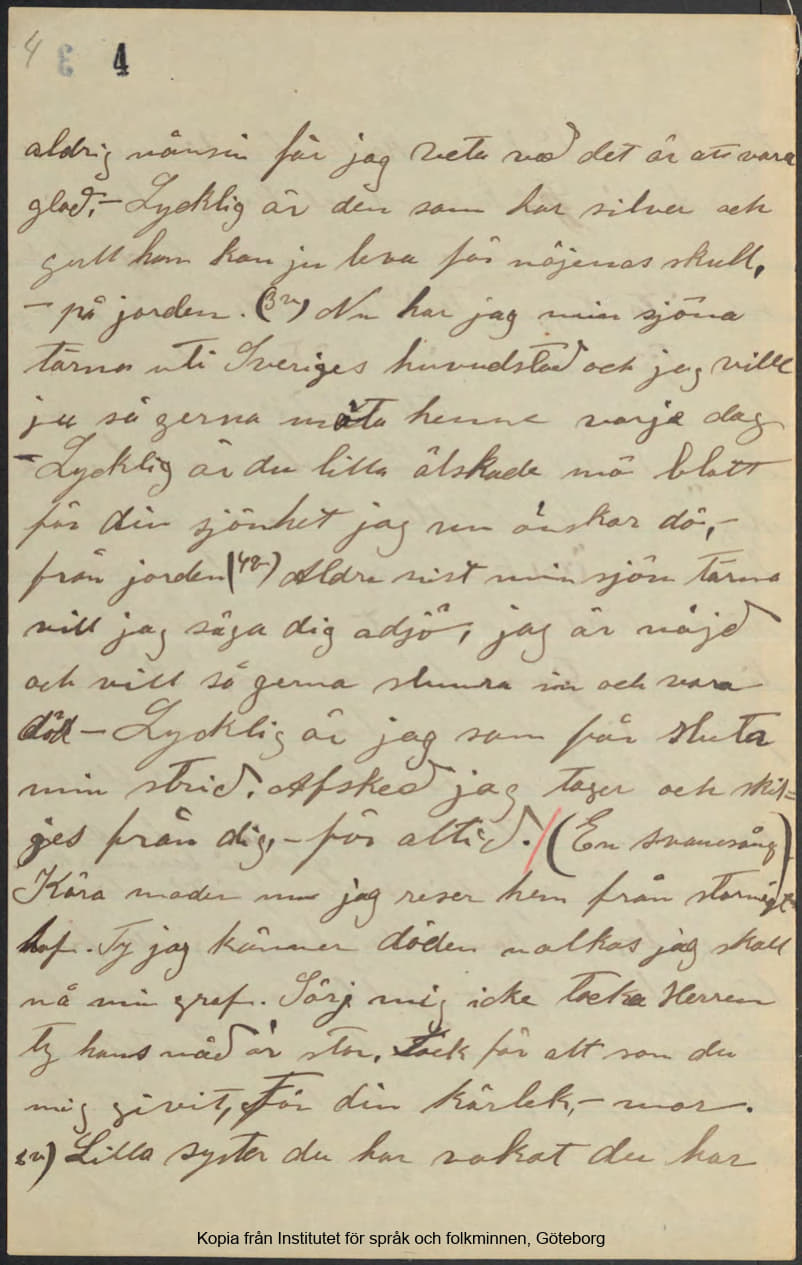 4 3 4
aldrig nånsin får jag veta vad det är att vara
glad,– Lycklig är den som har silver och
gull han kan ju leva för nöjenas skull,
– på jorden. (3 v) Nu har jag min sjöna
tärna uti Sveriges huvudstad och jag vill
ju så gerna möta henne varje dag
– Lycklig är du lilla älskade mö blott
för din sjönhet jag nu önskar dö,–
från jorden (4 v) Aldra sist min sjön tärna
vill jag säga dig adjö, jag är nöjd
och vill så gerna slumra in och vara
död – Lycklig är jag som får sluta
min strid. Afsked jag tager och skil=
jes från dig,– för alltid. / (En svanesång)
Kära moder nu jag reser hem från stormigt
haf. Ty jag känner döden nalkas jag skall
nå min graf. Sörj mig icke tacka Herren
ty hans nåd är stor. Tack för allt som du
mig givit, För din kärlek,– mor.
2 v) Lilla syster du har vakat du har
Kopia från Institutet för språk och folkminnen, Göteborg